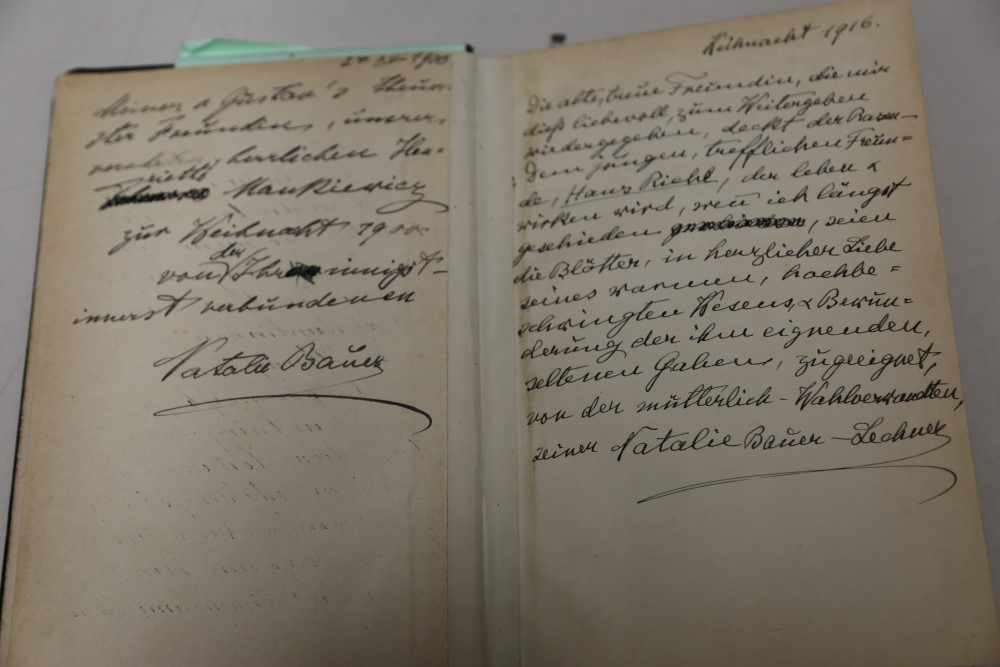 24. XII. 1900
Meiner & Gustav's theuer-
ster Freundin, unserer
verehrten, herrlichen Hen-
riette
Mankiewicz
zur Weihnacht 1900.
der
von Ihr innigst-
innerst verbundenen
Natalie Bauer
Weihnacht 1916.
Die alte, treue Freundin, die mir
dieß liebevoll, zum Weitergeben
wiedergegeben, deckt der Rasen –
Dem jungen, trefflichen Freun=
de, Hans Riehl, der leben &
wirken wird, wen ich längst
geschieden, seien
die Blätter, in herzlicher Liebe
seines warmen, hochbe=
schwingten Wesens, & Bewun=
derung der ihm eignenden,
seltenen Gaben, zugeeignet,
von der mütterlich – Wahlverwandten,
seiner Natalie Bauer – Lechner